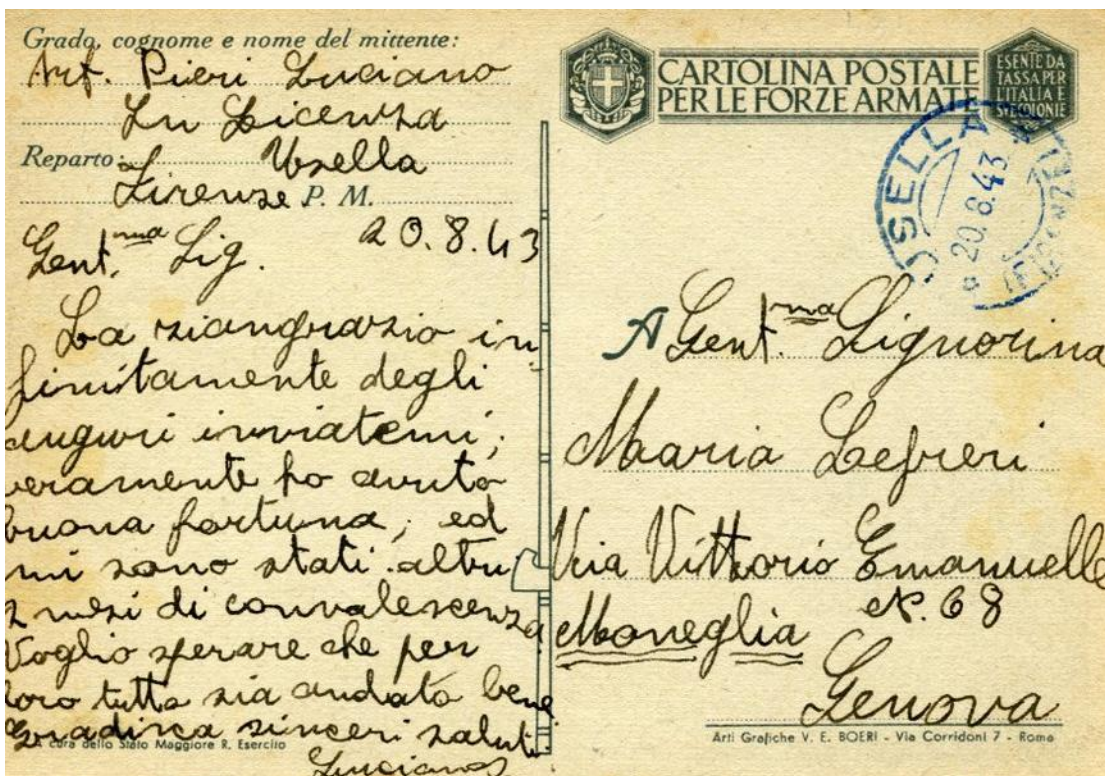 Grado, cognome e nome del mittente:
Art. Pieri Luciano
In Licenza
Reparto: Usella
Firenze P. M.
Gent.ma Sig. 20.8.43
La riangrazio in
finitamente degli
auguri inviatemi,
veramente ho avuto
buona fortuna, ed
mi sono stati altri
2 mesi di convalescenza
Voglio sperare che per
loro tutto sia andato bene
Gradisca sinceri saluti
A cura dello Stato Maggiore R. Esercito
Luciano
CARTOLINA POSTALE
PER LE FORZE ARMATE
ESENTE DA
TASSA PER
L'ITALIA E
SUE COLONIE
USELLA
20.8.43
(FIRENZE)
A Gent.ma Signorina
Maria Lefreri
Via Vittorio Emanuelle
N. 68
Moneglia
Genova
Arti Grafiche V. E. BOERI - Via Corridoni 7 - Roma